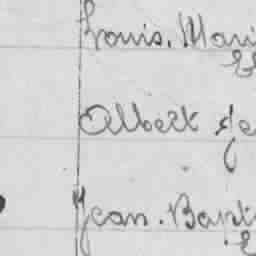 Louis. Mari
Albert Je
Jean. Bapt